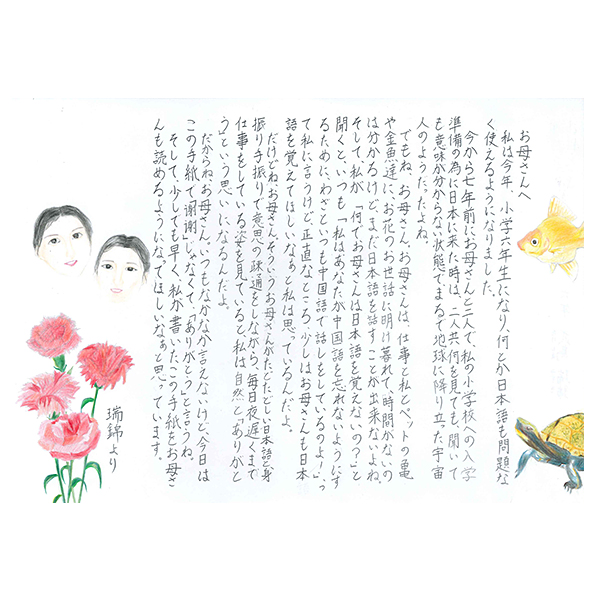 お母さんへ
私は今年、小学六年生になり、何とか日本語も問題な
く使えるようになりました。
今から七年前にお母さんと二人で、私の小学校への入学
準備の為に日本に来た時は、二人共、何を見ても、聞いて
も意味が分からない状態で、まるで地球に降り立った宇宙
人のようだったよね。
でもね、お母さん、お母さんは、仕事と私とペットの亀
や金魚達に、お花のお世話に明け暮れて、時間がないの
は分かるけど、まだ日本語を話すことが出来ないよね。
そして、私が「何でお母さんは日本語を覚えないの?」と
聞くと、いつも「私はあなたが中国語を忘れないようにす
るために、わざといつも中国語で話しをしているのよ!」っ
て私に言うけど、正直なところ、少しはお母さんも日本
語を覚えてほしいなぁと私は思っているんだよ。
だけどね、お母さん、そういうお母さんがたどたどしい日本語と身
振り手振りで意思の疎通をしながら、毎日夜遅くまで
仕事をしている姿を見ていると、私は自然と「ありがと
う」という思いになるんだよ。
だからね、お母さん、いつもなかなか言えないけど、今日は
この手紙で「谢谢」じゃなくて、「ありがとう」と言うね。
そして、少しでも早く、私が書いたこの手紙をお母さ
んも読めるようになってほしいなぁと思っています。
瑞錦より